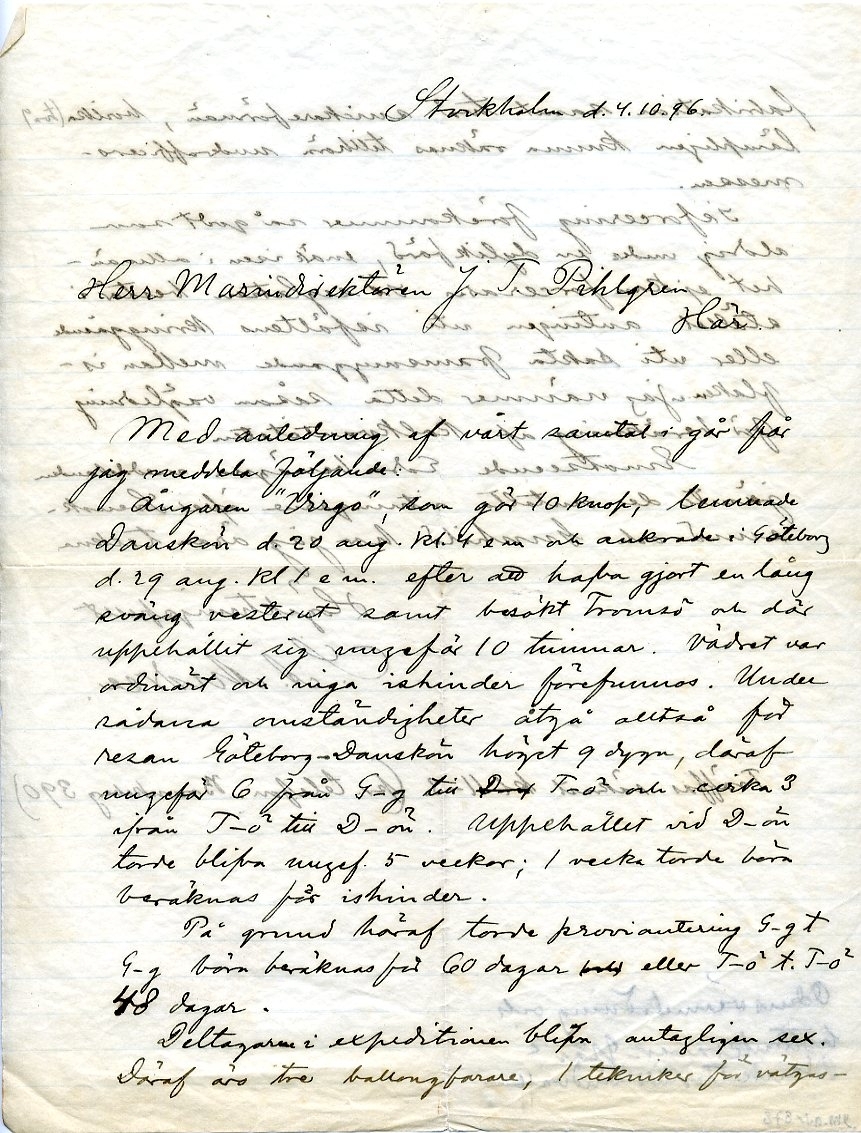 Stockholm d. 4.10.96.
Herr Marindirektören J. T. Pihlgren
Här.
Med anledning af vårt samtal i går får
jag meddela följande:
Ångaren "Virgo", som gör 10 knop, lemnade
Danskön d. 20 aug. kl. 4 e m och ankrade i Göteborg
d. 29 aug. kl 1 e m. efter att hafva gjort en lång
sväng vesterut samt besökt Tromsö och där
uppehållit sig ungefär 10 timmar. Vädret var
ordinärt och inga ishinder förefunnos. Under
sådana omständigheter åtgå alltså för
resan Göteborg-Danskön högst 9 dygn, däraf
ungefär 6 från G-g till T-ö och cirka 3
ifrån T-ö till D-ön. Uppehållet vid D-ön
torde blifva ungef. 5 veckor; 1 vecka torde böra
beräknas för ishinder.
På grund häraf torde proviantering G-g t
G-g böra beräknas för 60 dagar eller T-ö t. T-ö
48 dagar.
Deltagarne i expeditionen blifva antagligen sex.
Däraf äro tre ballongfarare, 1 tekniker för vätgas-